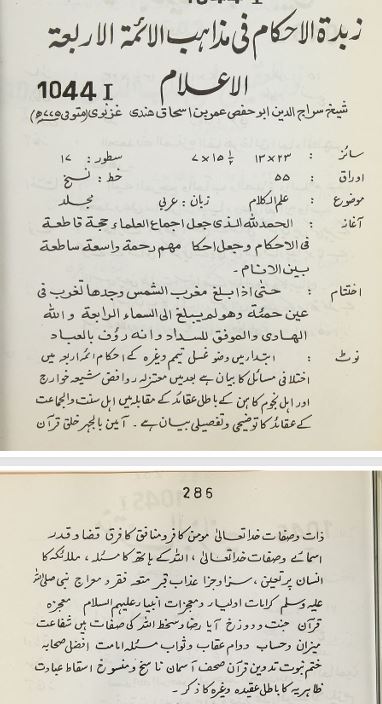 1044 I
زبدة الاحکام فی مذاہب الائمة الاربعة
الاعلام
1044 I
شیخ سراج الدین ابوحفص عمر بن اسحاق ہندی غزنوی (متوفی ۷۷۵ھ)
سائز : ۲۳×۱۳ ۱۵½×۷ سطور : ۱۷
اوراق : ۵۵ خط : نسخ
موضوع : علم الکلام زبان : عربی مجلد
آغاز : الحمدللہ الذی جعل اجماع العلماء حجة قاطعة
فی الاحکام وجعل احکا مھم رحمة واسعة ساطعة
بین الانام ۔
اختتام : حتی اذا بلغ مغرب الشمس وجدھا تغرب فی
عین حمئة وھو لم یبلغ الی السماء الرابعة واللہ
الھادی والموفق للسداد وانہ رؤف بالعباد
نوٹ : ابتدا میں وضو غسل تیمم وغیرہ کے احکام ائمہ اربعہ میں
اختلافی مسائل کا بیان ہے بعد میں معتزلہ روافض شیعہ خوارج
اور اہل نجوم کاہن کے باطل عقائد کے مقابلہ میں اہل سنت والجماعت
کے عقائد کا توضیحی و تفصیلی بیان ہے ۔ آمین بالجہر خلق قرآن
286
ذات وصفات خدا تعالیٰ مومن کافر و منافق کا فرق قضا و قدر
اسمائے وصفات خدا تعالیٰ ، اللہ کے ہاتھ کا مسئلہ ، ملائکہ کا
انسان پر تعین ، سزا و جزا عذاب قبر متعہ فقر و معراج نبی صلی اللہ
علیہ وسلم کرامات اولیاء و معجزات انبیاء علیہم السلام معجزہ
قرآن جنت و دوزخ آیا رضا و سخط اللہ کی صفات ہیں شفاعت
میزان وحساب دوام عقاب وثواب مسئلہ امامت افضل صحابہ
ختم نبوت تدوین قرآن صحف آسمان ناسخ و منسوخ اسقاط عبادت
ظاہریہ کا باطل عقیدہ وغیرہ کا ذکر ۔